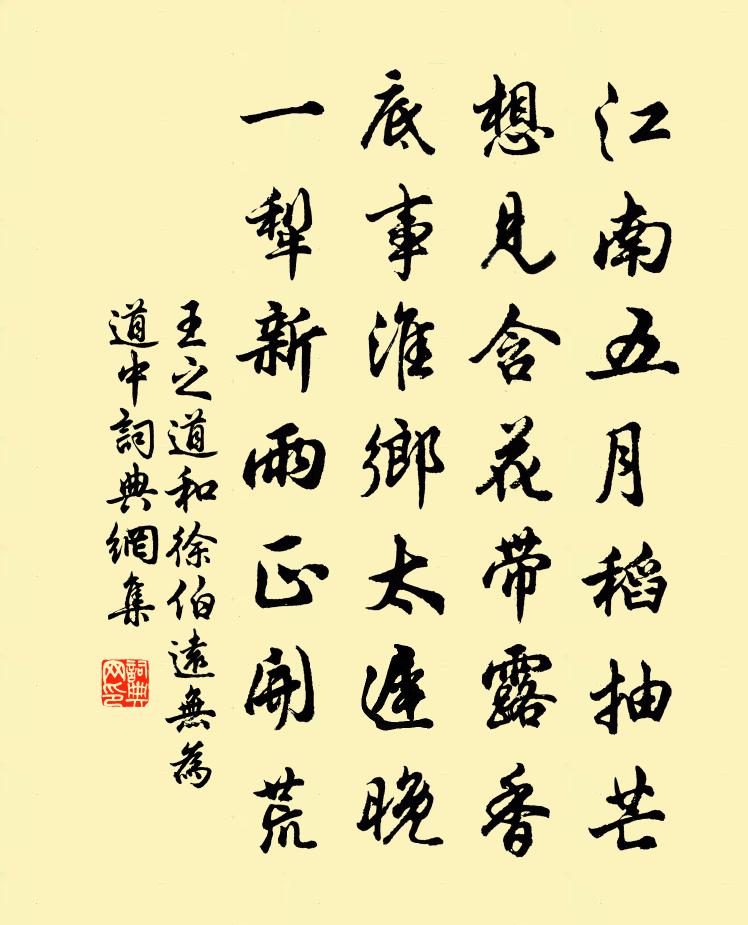 江南五月稻抽芒
想見含花带露香
底事淮鄉太遲晚
一犁新雨正開荒
王之道和徐伯遠無為
道中詞典網集
詞典网印